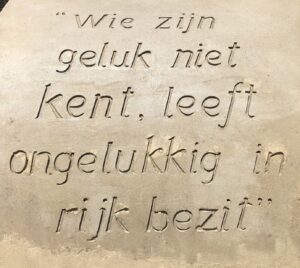 "Wie zijn
geluk niet
kent, leeft
ongelukkig in
rijk bezit"